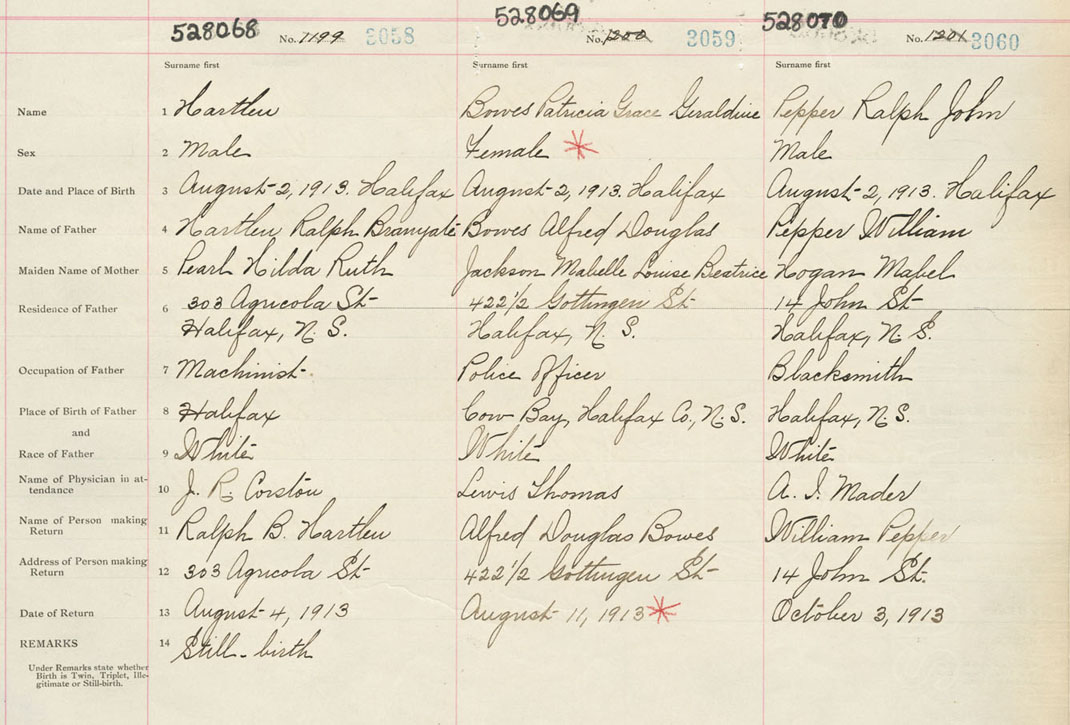 528068 No. 1199 3058
528069 No. 1200 3059
528070 No. 1201 3060
Surname first Surname first Surname first
Name 1 Hartlen Bowes Patricia Grace Geraldine Pepper Ralph John
Sex 2 Male Female * Male
Date and Place of Birth 3 August 2, 1913. Halifax August 2, 1913. Halifax August 2, 1913. Halifax
Name of Father 4 Hartlen Ralph Bowes Alfred Douglas Pepper William
Maiden Name of Mother 5 Pearl Hilda Ruth Jackson Mabelle Louise Beatrice Hogan Mabel
Residence of Father 6 303 Agricola St 422 1/2 Gottingen St 14 John St
Halifax, N. S. Halifax, N. S. Halifax, N. S.
Occupation of Father 7 Machinist. Police Officer Blacksmith
Place of Birth of Father 8 Halifax Cow Bay, Halifax Co., N. S. Halifax, N. S.
and
Race of Father 9 White White White
Name of Physician in at-
tendance 10 J. R. Corston Lewis Thomas A. I. Mader
Name of Person making
Return 11 Ralph B. Hartlen Alfred Douglas Bowes William Pepper
Address of Person making
Return 12 303 Agricola St 422 1/2 Gottingen St 14 John St.
Date of Return 13 August 4, 1913 August 11, 1913 * October 3, 1913
REMARKS 14 Still-birth
Under Remarks state whether
Birth is Twin, Triplet, Ille-
gitimate or Still-birth.